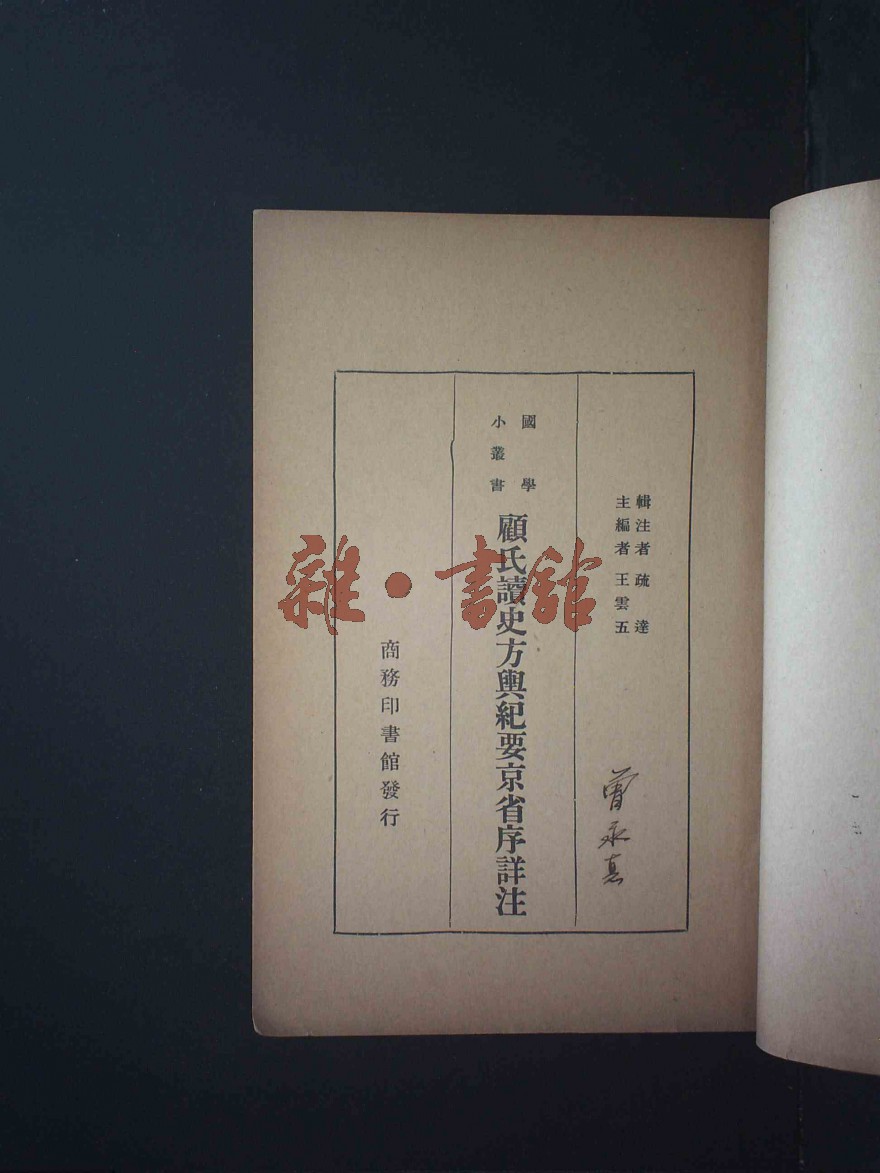 輯注者 疏達
主編者 王雲五
曾永真
國學
小叢書
顧氏讀史方輿紀要京省序詳注
商務印書館發行
雜·書館